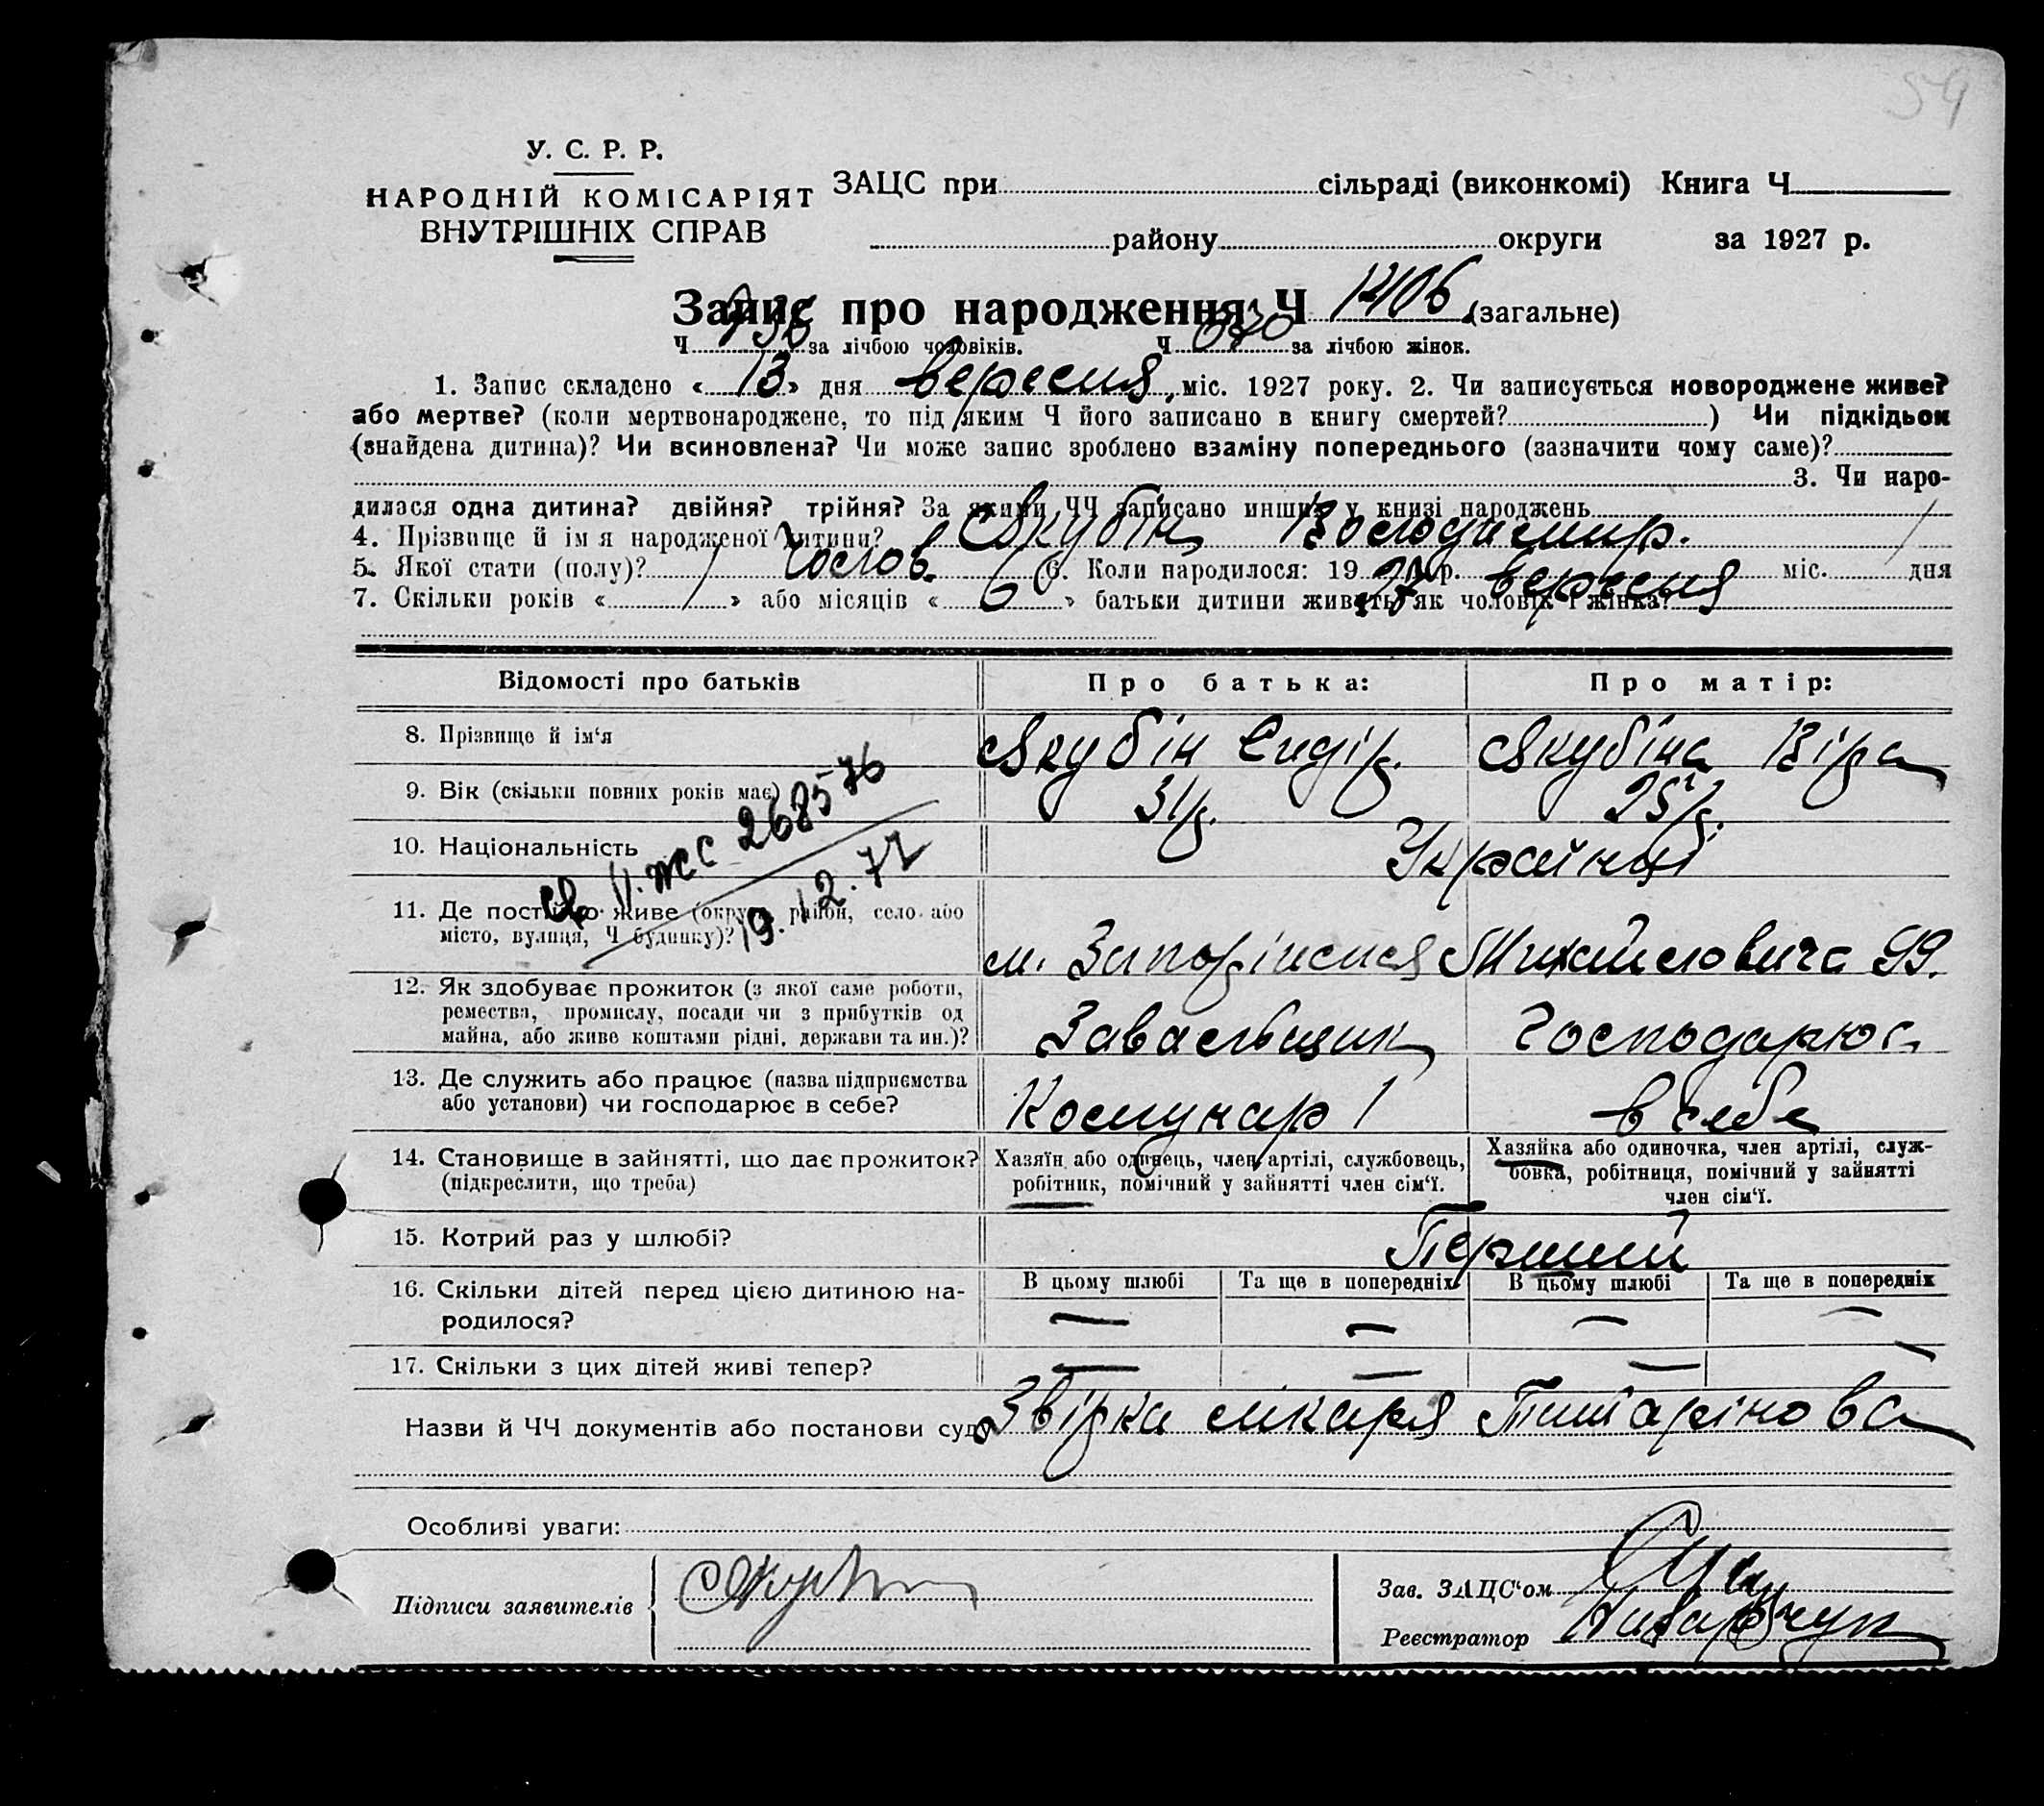 54
У. С. Р. Р.
НАРОДНІЙ КОМІСАРІЯТ
ВНУТРІШНІХ СПРАВ
ЗАЦС при сільраді (виконкомі) Книга Ч
району округи за 1927 р.
Запис про народження Ч 1406 (загальне)
Ч 736 за лічбою чоловіків. Ч 670 за лічбою жінок.
1. Запис складено « 13 » дня вересня, міс. 1927 року. 2. Чи записується новороджене живе?
або мертве? (коли мертвонароджене, то під яким Ч його записано в книгу смертей? ) Чи підкідьок
(знайдена дитина)? Чи всиновлена? Чи може запис зроблено взаміну попереднього (зазначити чому саме)?
3. Чи наро-
дилася одна дитина? двійня? трійня? За якими ЧЧ записано инших у книзі народжень
4. Прізвище й ім я народженої дитини? Якубін Володимир.
5. Якої стати (полу)? чолов. 6. Коли народилося: 19 р. вересня міс. дня
7. Скільки років « » або місяців « 6 » батьки дитини живуть як чоловік і жінка?
Відомості про батьків Про батька: Про матір:
8. Прізвище й ім‘я Якубін Сидір. Якубіна Віра
9. Вік (скільки повних років має) 31р. 25р.
10. Національність Українці
11. Де постійно живе (округа, район, село або
місто, вулиця, Ч будинку)? м. Запоріжжя Михайловича 99.
II. ЖС 268576
19.12.77
12. Як здобуває прожиток (з якої саме роботи,
ремества, промислу, посади чи з прибутків од
майна, або живе коштами рідні, держави та ин.)? Завальщик Господарює
13. Де служить або працює (назва підприємства
або установи) чи господарює в себе? Комунар 1 в себе
14. Становище в зайнятті, що дає прожиток?
(підкреслити, що треба)
Хазяїн або одинець, член артілі, службовець,
робітник, помічний у зайнятті член сім‘ї.
Хазяйка або одиночка, член артілі, служ-
бовка, робітниця, помічний у зайнятті
член сім‘ї.
15. Котрий раз у шлюбі? Перший
16. Скільки дітей перед цією дитиною на-
родилося?
В цьому шлюбі Та ще в попередніх В цьому шлюбі Та ще в попередніх
— — — —
17. Скільки з цих дітей живі тепер? — — — —
Назви й ЧЧ документів або постанови суду Звірка лікаря
Особливі уваги:
Підписи заявителів
Зав. ЗАЦС‘ом
Реєстратор